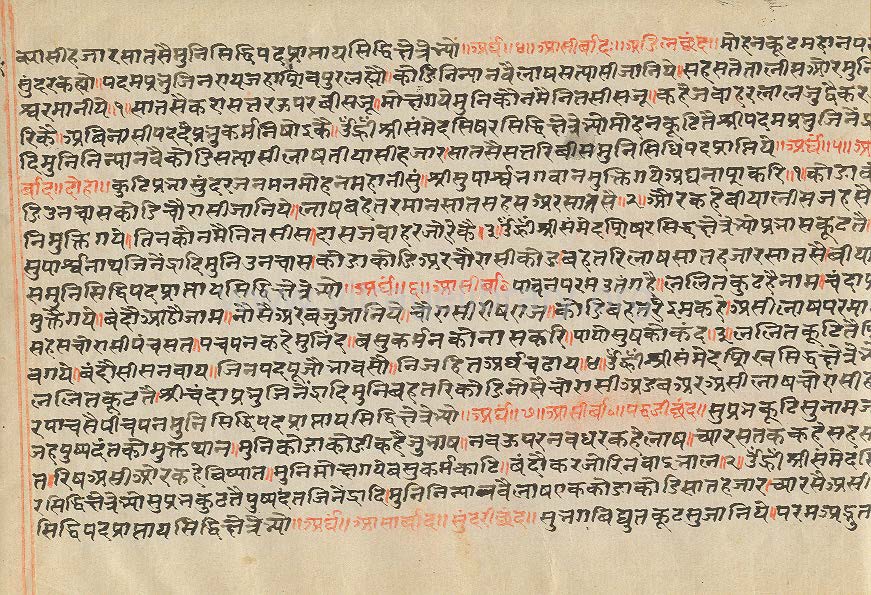 ब्यासीहजारसातसैमुनिसिद्धिपदप्राप्तायसिद्धिक्षेत्रेभ्यो॥अर्घं॥५॥आसीर्वादः॥अडिलछंद॥मोहनकूटमहानपर
सुंदरकह्यो॥पदमप्रभुजिनरायजहाशिवपुरलह्यौ॥कोडिनिन्यानवैलाषसत्यासीजानिये॥सहसतेतालीसऔरमुनि
श्वरमानीये॥१॥सातसैकरासत्तरऊपरबीसजू॥मोक्षगयेमुनिकौनमैनितसीसजू॥कहैजवाहरलालजुदोकर
टिमुनिनिन्यानवैकोडिसत्यासीलाषतीयासीहजारसातसैसत्तरिबीसमुनिसिधिपदप्रानिये॥अर्घं॥५॥आ
र्बाद॥दोहा॥कुटिप्रभासुंदरजनमनमोहनमहानीसुं॥श्रीसुपार्श्वभगवानमुक्तिगयेअघनापाकरि॥१॥कोडाको
डिउनचासकोडिचौरासीजानिये॥लाषबहतरमानसातसहसअरसातसै॥२॥औरकहेबीयालीसजहसै
निमुक्तिगये॥तिनकौनमैनितसीस॥दासजवाहरजोरिकै॥३॥ॐह्रीँश्रीसंमेदशिषरसिद्धक्षेत्रेभ्योप्रभासकूटतै॥
सुपार्श्वनाथजिनेंद्रादिमुनिउनचासकोडाकोडिअरचौरासीकोडबहतरिलाषसातहजारसातसैबीया
समुनिसिद्धिपदप्राप्तायसिद्धिक्षेत्रेभ्यो॥अर्घं॥६॥आसीर्बाद॥पावनपरमउतगहै॥ललितकुटहैनाम॥चंदाप्र
मुक्तेगये॥बंदौआठौजाम॥नौसैअरबजुजानिये॥चौरासीरिषराज॥कोडिबहत्तरिमकहे॥असीलाषपरमा
सहसचौरासीपंचसत॥पचपनकहेमुनिंद॥बसुकर्मनकोनासकरि॥पायोसुषकोकंद॥३॥ललितकूटितै
बगये॥बंदौसीसनवाय॥जिनपदपूजौभावसौ॥निजहितअर्घचढाय॥४॥ॐह्रीँश्रीसंमेदशिखरसिद्धक्षेत्रेभ्यो
ललितकूटतैश्रीचंदाप्रभुजिनेंद्रादिमुनिबहतरिकोडिनौसैचौरासीअरबअरअसीलाषचौरासीह
रपाचसैपीचपनमुनिसिद्धिपदप्राप्तायसिद्धिक्षेत्रेभ्यो॥अर्घं॥७॥आसीर्बाद॥पद्धडीछंद॥सुप्रभकूटिसुनामज
जहपुष्पदंतकोमुक्तथान॥मुनिकोडाकोडीकहैजुभाष॥नवऊपरनवधरकहैलाष॥चारसतककहेसहस
त॥रिषअसीऔरकहेबिष्यात॥मुनिमोक्षगयेबसुकर्मकाटि॥बंदौकरजोरिनवाऽभाल॥२॥ॐह्रीँश्रीसंमेदसि
रसिद्धिक्षेत्रेभ्योसुप्रभकुटतैपुष्पदंतजिनेंद्रादिमुनिनिन्यानवैलाषएककोडाकोडिसातहजारचारसैअसी
सिद्धिपदप्राप्तायसिद्धिक्षेत्रेभ्यो॥अर्घं॥आसीर्बाद॥सुंदरीछंद॥सुभगबिद्युतकूटसुजानिये॥परमअद्भुत